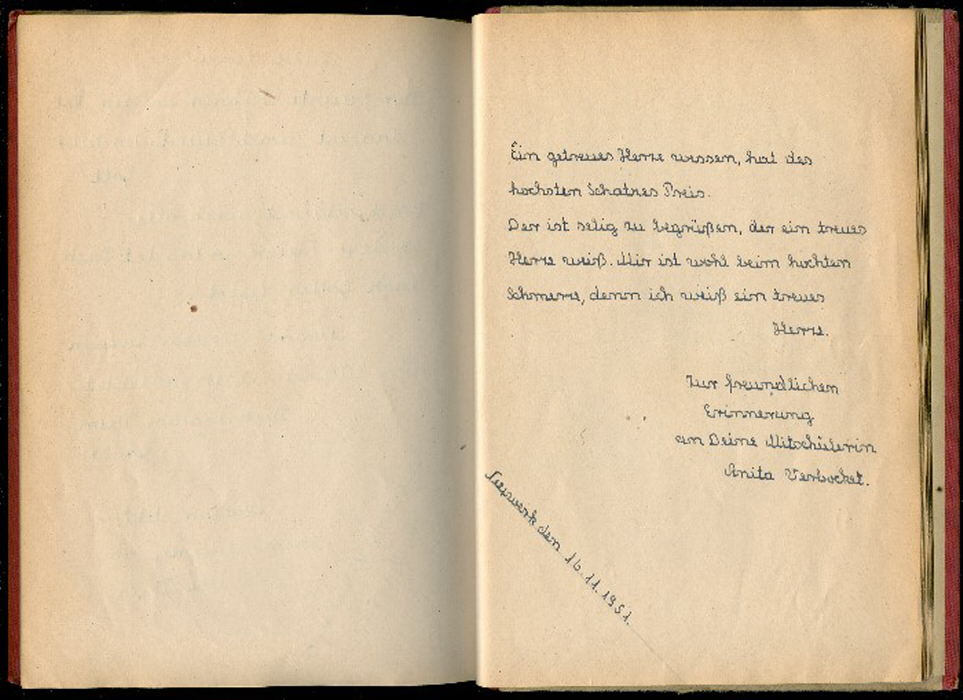 Ein getreues Herze wissen, hat des
hochsten Schatzes Preis.
Der ist selig zu begrüßen, der ein treues
Herze weiß. Mir ist wohl beim hochten
Schmerze, denn ich weiß ein treues
Herze.
Zur freundlichen
Erinnerung
an Deine Mitschülerin
Anita Verbocket.
den 16.11.1951.